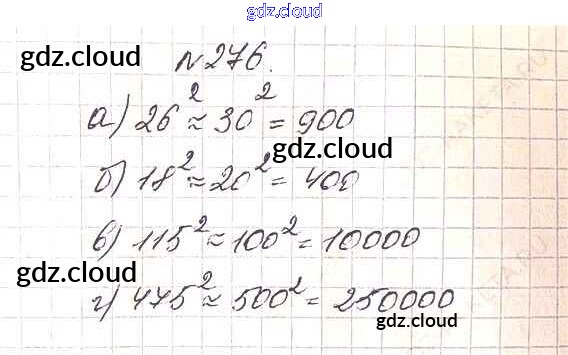 gdz.cloud
gdz.cloud
№276.
gdz.cloud
а) 26² ≈ 30² = 900
gdz.cloud
б) 18² ≈ 20² = 400
в) 115² ≈ 100² = 10000
gdz.cloud
г) 475² ≈ 500² = 250000
gdz.cloud